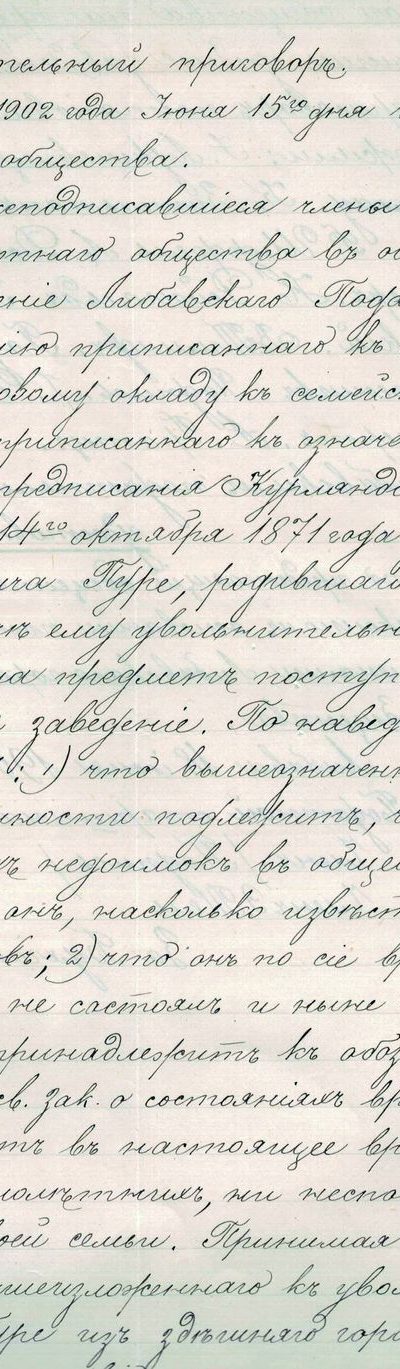 тельный приговоръ.
1902 года Іюня 15го дня
общества.
еподписавшіеся члены
тнаго общества въ
ніе Либавскаго Пода
ію приписаннаго къ
овому окладу къ семейс
приписаннаго къ означе
предписанія Курляндс
14го октября 1871 года
ича Пуре, родившаго
ѣ ему увольнительн
на предметъ поступ
заведеніе. По навед
: 1) что вышеозначенн
нности подлежитъ,
ъ недоимокъ въ обще
онъ, насколько извѣст
въ; 2) что онъ по сіе вр
не состоялъ и ныне
принадлежитъ къ обоз
св. зак. о состояніяхъ вр
тъ въ настоящее вр
олѣтнихъ, ни неспо
оей семьи. Принимая
шеизложеннаго къ увол
уре изъ здѣшняго горо